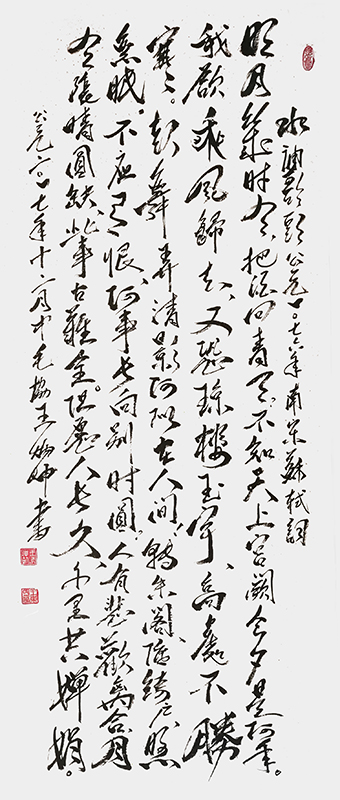 水調歌頭 公元一〇七六年南宋蘇軾詞
明月幾時有，把酒问青天。不知天上宫阙，今夕是何年。
我欲乘风歸去，又恐琼樓玉宇，高處不勝
寒。起舞弄清影，何似在人間。轉朱阁，低绮户，照
無眠。不应有恨，何事长向别时圓。人有悲歡离合，月
有陰晴圓缺，此事古難全。但愿人长久，千里共嬋娟。
公元二〇一七年十二月中毛協王書